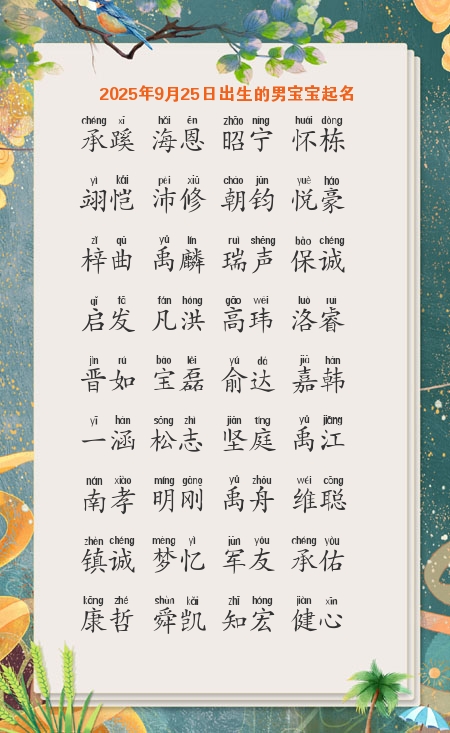 2025年9月25日出生的男宝宝起名
chéng xī hǎi ēn zhāo níng huái dòng
承蹊 海恩 昭宁 怀栋
yì kǎi pèi xiū cháo jūn yuè háo
翊恺 沛修 朝钧 悦豪
zǐ qǔ yǔ lín ruì shēng bǎo chéng
梓曲 禹麟 瑞声 保诚
qǐ fā fán hóng gāo wěi luò ruì
启发 凡洪 高玮 洛睿
jìn rú bǎo lěi yú dá jiā hán
晋如 宝磊 俞达 嘉韩
yī hán sōng zhì jiān tíng yǔ jiāng
一涵 松志 坚庭 禹江
nán xiào míng gāng yǔ zhōu wéi cōng
南孝 明刚 禹舟 维聪
zhèn chéng mèng yì jūn yǒu chéng yòu
镇诚 梦忆 军友 承佑
kāng zhé shùn kǎi zhī hóng jiàn xīn
康哲 舜凯 知宏 健心